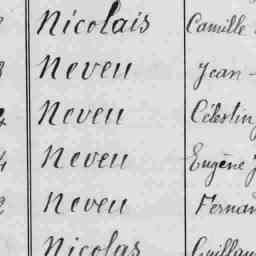 Nicolais Camille
Neveu Jean
Neveu Célestin
Neveu Eugène
Neveu
Nicolas